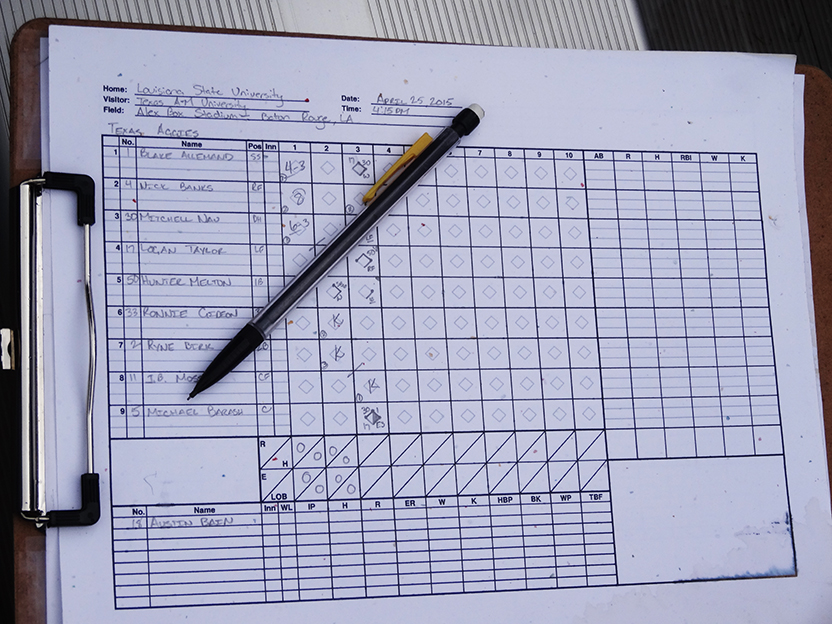 Home: Louisiana State University
Visitor: Texas A+M University
Field: Alex Box Stadium Baton Rouge, LA
Date: April 25 2015
Time: 4:15 PM
Texas Aggies
No. Name Pos Inn 1 2 3 4 6 7 8 9 10 AB R H RBI W K
1 1 Blake Allemand SS 4-3
2 4 Nick Banks RF 8
3 30 Mitchell Nau DH 6-3
4 17 Logan Taylor LF
5 50 Hunter Melton 1B
6 33 Ronnie Gideon K
7 2 Ryne Birk K
8 11 J.B. CF K
9 5 Michael Barash C
R H 0 0 0 0
E LOB 0 0 0 0
No. Name Inn WL IP H R ER W K HBP BK WP TBF
18 Austin Bain